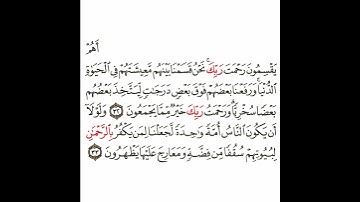 أَهُمْ
يَقْسِمُونَ رَحْمَتَ رَبِّكَ ۚ نَحْنُ قَسَمْنَا بَيْنَهُم مَّعِيشَتَهُمْ فِي الْحَيَوٰةِ
الدُّنْيَا ۚ وَرَفَعْنَا بَعْضَهُمْ فَوْقَ بَعْضٍ دَرَجَٰتٍ لِّيَتَّخِذَ بَعْضُهُم
بَعْضًا سُخْرِيًّا ۗ وَرَحْمَتُ رَبِّكَ خَيْرٌ مِّمَّا يَجْمَعُونَ ٣٢ وَلَوْلَا
أَن يَكُونَ النَّاسُ أُمَّةً وَٰحِدَةً لَّجَعَلْنَا لِمَن يَكْفُرُ بِالرَّحْمَٰنِ
لِبُيُوتِهِمْ سُقُفًا مِّن فِضَّةٍ وَمَعَارِجَ عَلَيْهَا يَظْهَرُونَ ٣٣